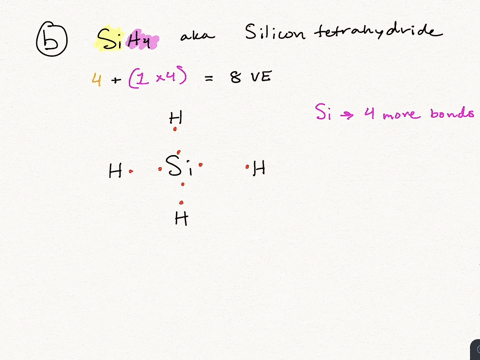 b SiH4 aka Silicon tetrahydride
4 + (1 x4) = 8 VE
Si → 4 more bonds
H
H Si H
H